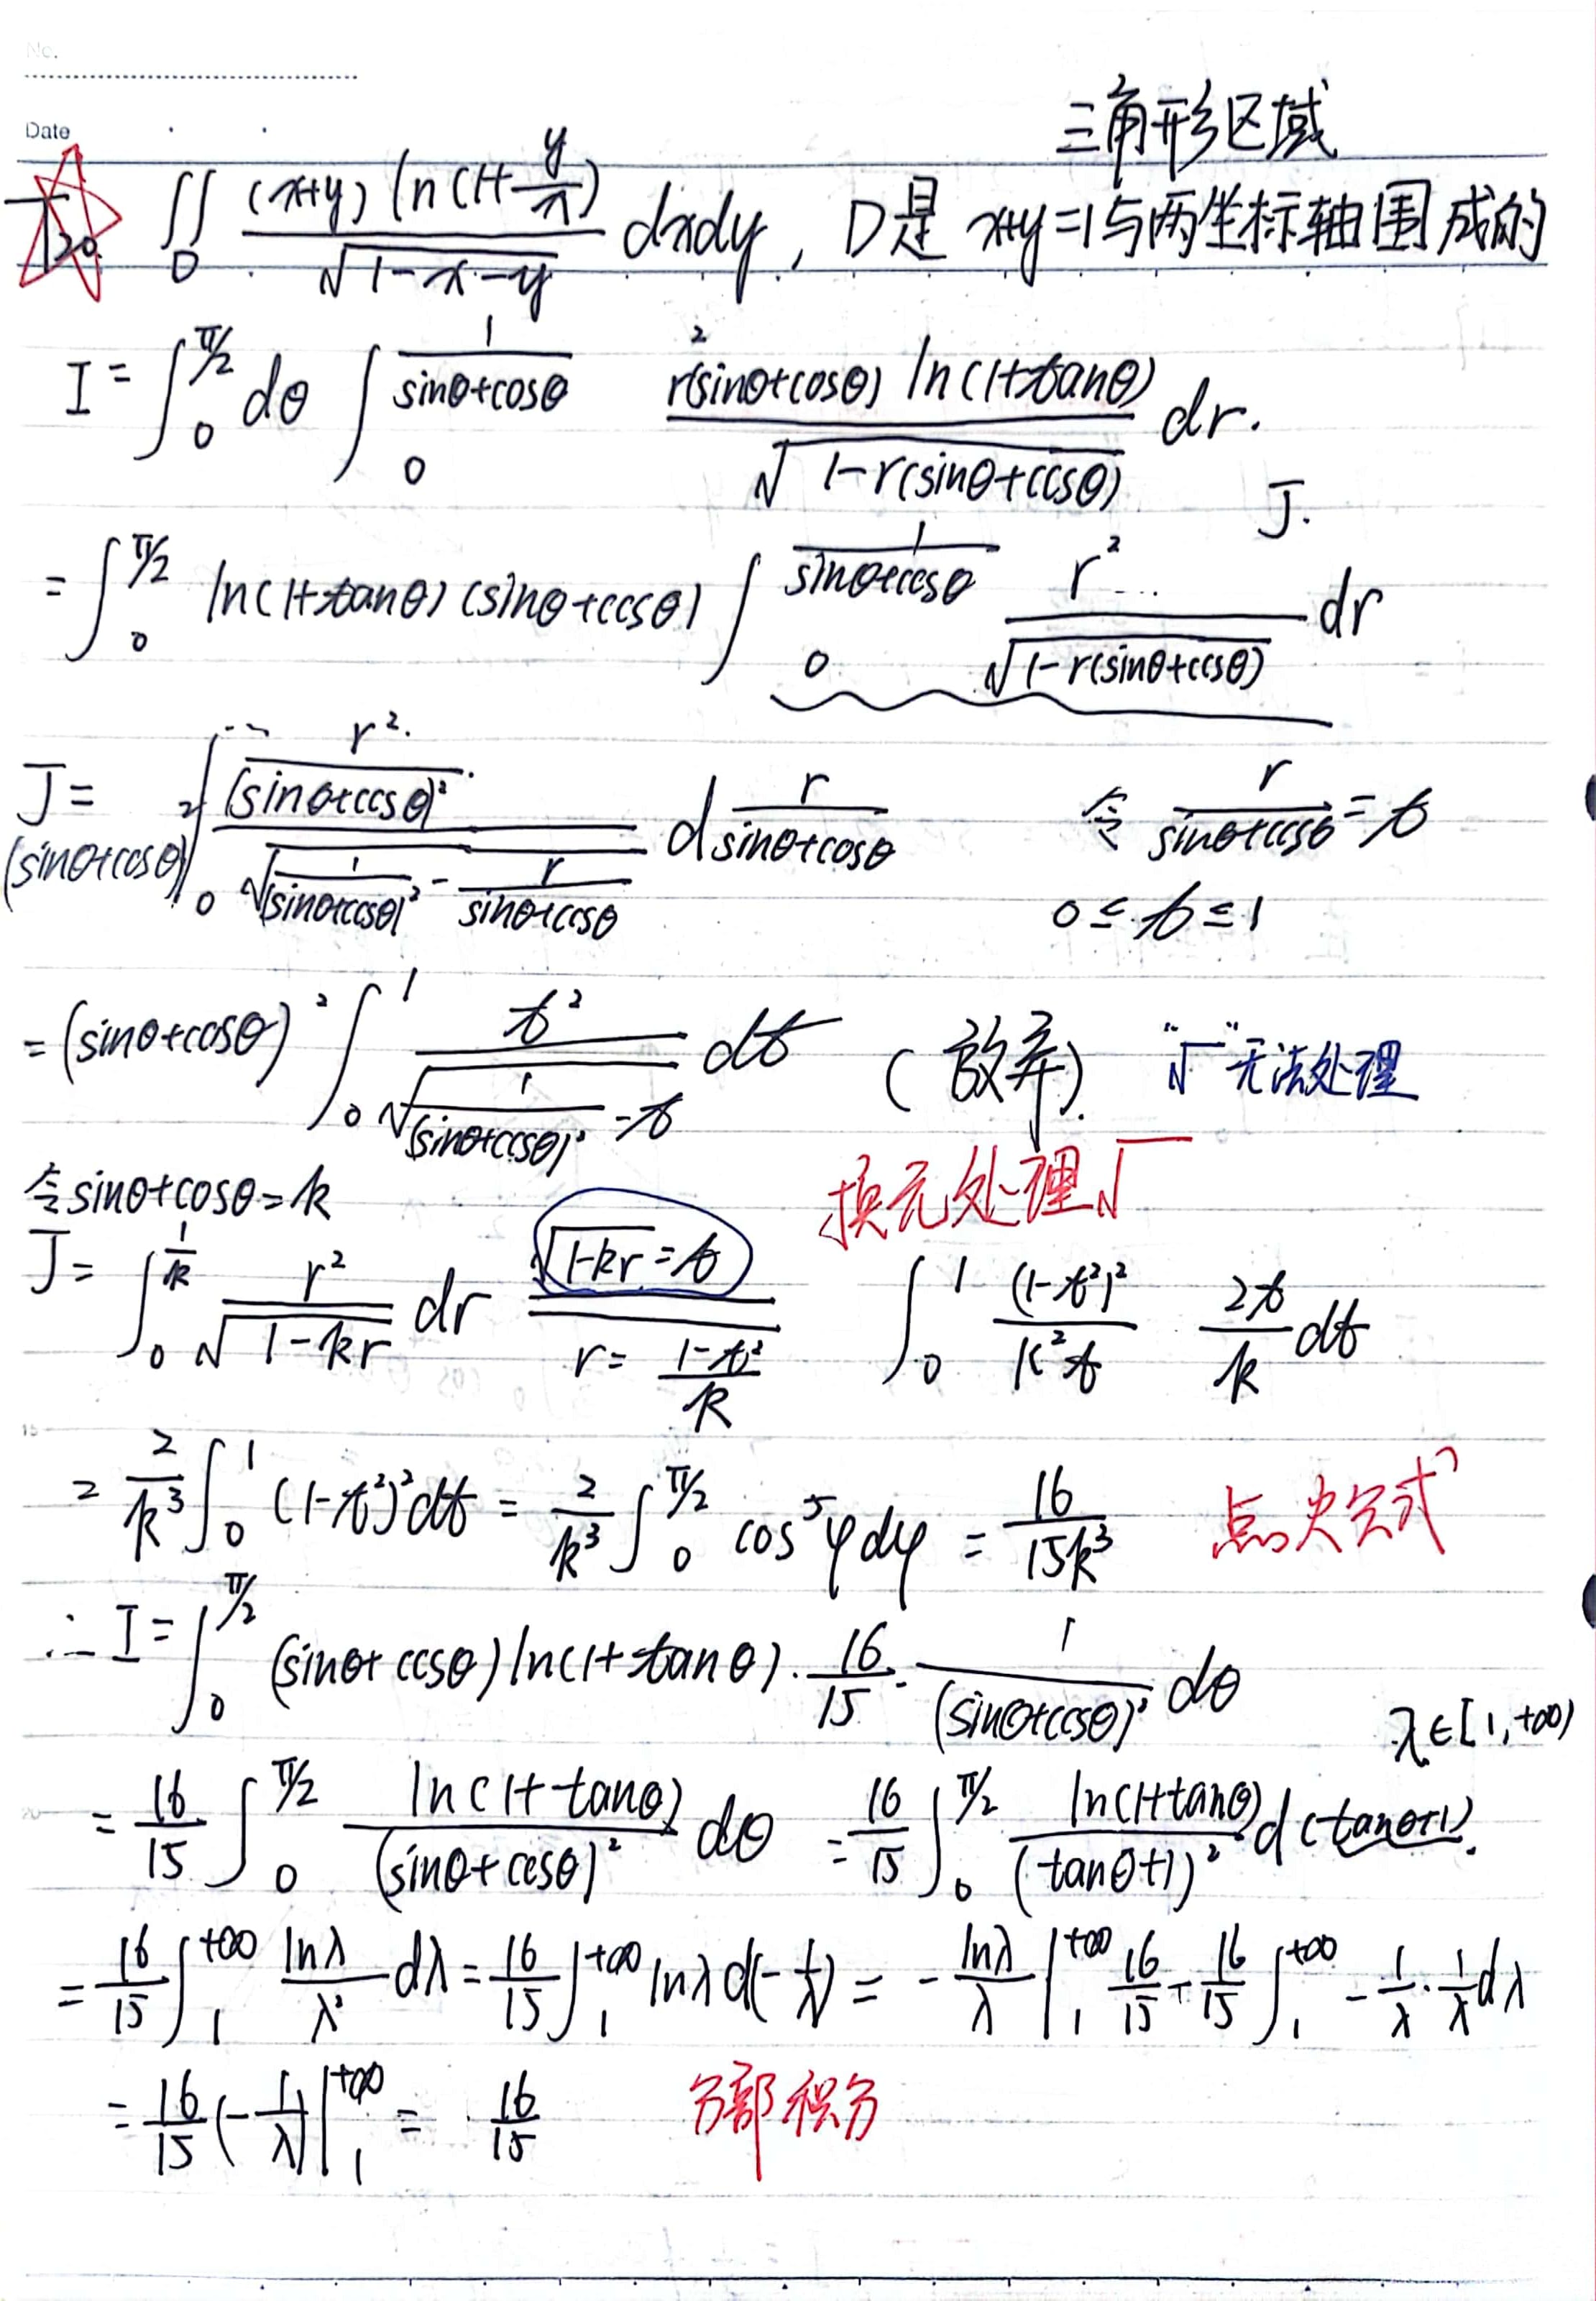 No.
Date
三角形区域
T20. ∬_D (x+y) ln(1+y/x) / √(1-x-y) dxdy, D是 x+y=1与两坐标轴围成的
I = ∫_0^{π/2} dθ ∫_0^{1/(sinθ+cosθ)} r²(sinθ+cosθ) ln(1+tanθ) / √(1-r(sinθ+cosθ)) dr.
J.
= ∫_0^{π/2} ln(1+tanθ) (sinθ+cosθ) ∫_0^{1/(sinθ+cosθ)} r² / √(1-r(sinθ+cosθ)) dr
J = (sinθ+cosθ)² ∫_0^{...} (r²/(sinθ+cosθ)²) / √(1/(sinθ+cosθ)² - r/(sinθ+cosθ)) d r/(sinθ+cosθ) 令 r/(sinθ+cosθ) = t
0 ≤ t ≤ 1
= (sinθ+cosθ)² ∫_0^1 t² / √(1/(sinθ+cosθ)² - t) dt (放弃). "√"无法处理
令sinθ+cosθ=k 换元处理√
J = ∫_0^{1/k} r²/√(1-kr) dr √(1-kr) = t r = (1-t²)/k ∫_0^1 (1-t²)²/(k²t) · 2t/k dt
= 2/k³ ∫_0^1 (1-t²)² dt = 2/k³ ∫_0^{π/2} cos⁵φdφ = 16/(15k³) 点火公式
∴ I = ∫_0^{π/2} (sinθ+cosθ) ln(1+tanθ) · 16/15 · 1/(sinθ+cosθ)³ dθ
λ∈[1,+∞)
= 16/15 ∫_0^{π/2} ln(1+tanθ)/(sinθ+cosθ)² dθ = 16/15 ∫_0^{π/2} ln(1+tanθ)/(tanθ+1)² d(tanθ+1).
= 16/15 ∫_1^{+∞} lnλ/λ² dλ = 16/15 ∫_1^{+∞} lnλ d(-1/λ) = -lnλ/λ |_1^{+∞} 16/15 - 16/15 ∫_1^{+∞} -1/λ · 1/λ dλ
= 16/15 (-1/λ)|_1^{+∞} = 16/15 分部积分